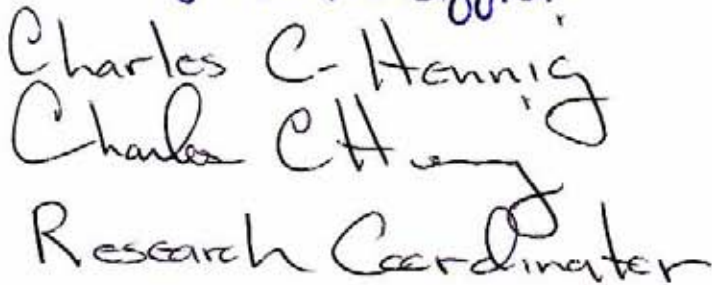 Charles C. Hennig
Charles C H
Research Coordinator